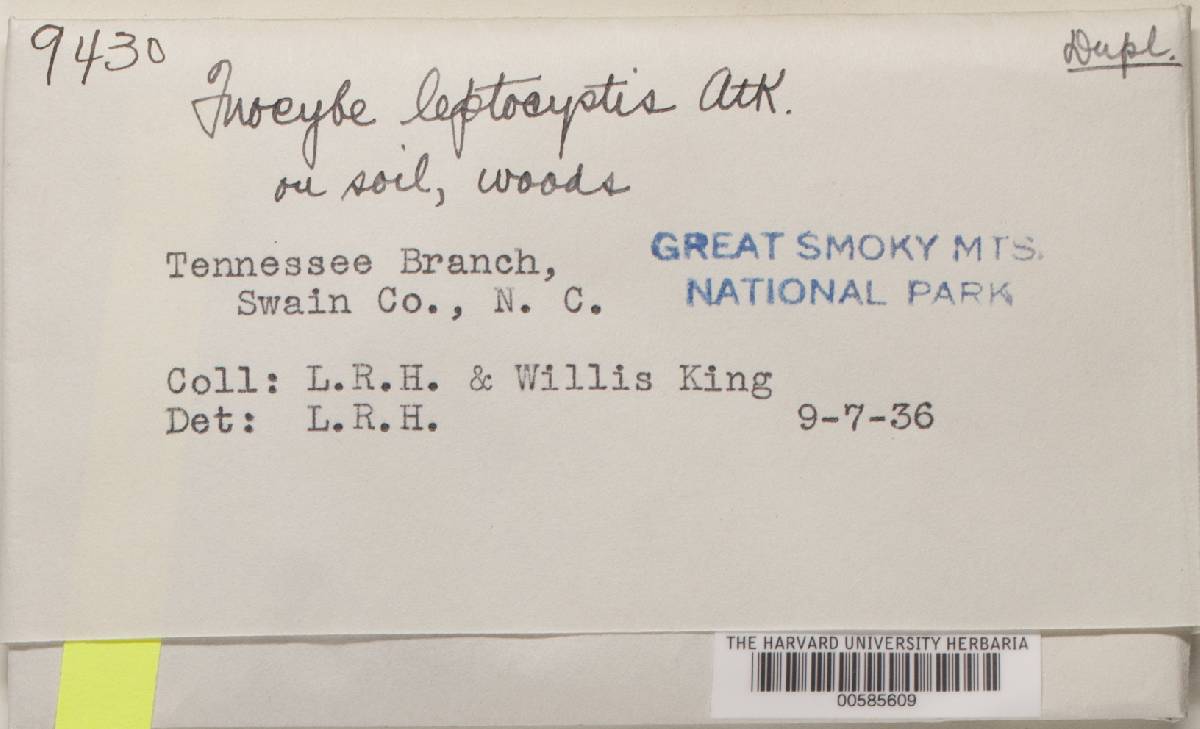 9430
Dupl.
Inocybe leptocystis Atk.
on soil, woods
Tennessee Branch,
Swain Co., N. C.
GREAT SMOKY MTS.
NATIONAL PARK
Coll: L.R.H. & Willis King
Det: L.R.H. 9-7-36
THE HARVARD UNIVERSITY HERBARIA
00585609